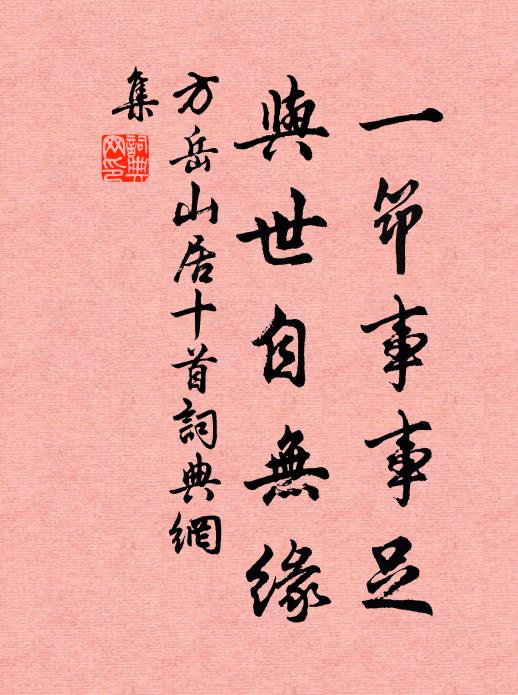 一筇事事足
與世自無緣
方岳山居十首詞典網
集
詞典
网印